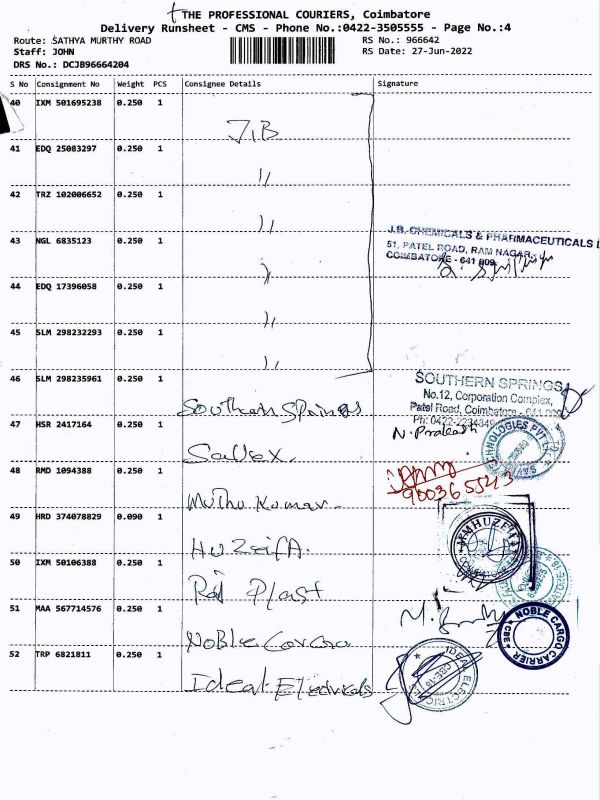 THE PROFESSIONAL COURIERS, Coimbatore
Delivery Runsheet - CMS - Phone No.:0422-3505555 - Page No.:4
Route: SATHYA MURTHY ROAD RS No.: 966642
Staff: JOHN RS Date: 27-Jun-2022
DRS No.: DCJB96664204
S No Consignment No Weight PCS Consignee Details Signature
40 IXM 501695238 0.250 1
J.B
41 EDQ 25083297 0.250 1
,,
42 TRZ 102006652 0.250 1
,,
43 NGL 6835123 0.250 1
J.B. CHEMICALS & PHARMACEUTICALS
51, PATEL ROAD, RAM NAGAR,
COIMBATORE - 641 009
,,
44 EDQ 17396058 0.250 1
,,
45 SLM 298232293 0.250 1
,,
46 SLM 298235961 0.250 1
SOUTHERN SPRINGS
No.12, Corporation Complex,
Patel Road, Coimbatore - 641 009
Southern Springs
47 HSR 2417164 0.250 1
Ph: 0422-2234849
N. Prakash
TECHNOLOGIES PVT LTD
48 RMD 1094388 0.250 1
9003655243
Muthu Kumar
49 HRD 374078829 0.090 1
HUZeifA.
50 IXM 50106388 0.250 1
Plast
51 MAA 567714576 0.250 1
NOBLE CARGO CARRIER
CBE
Noble Cargo
52 TRP 6821811 0.250 1
IDEAL ELECTRIC
CBE-18
Ideal Electricals